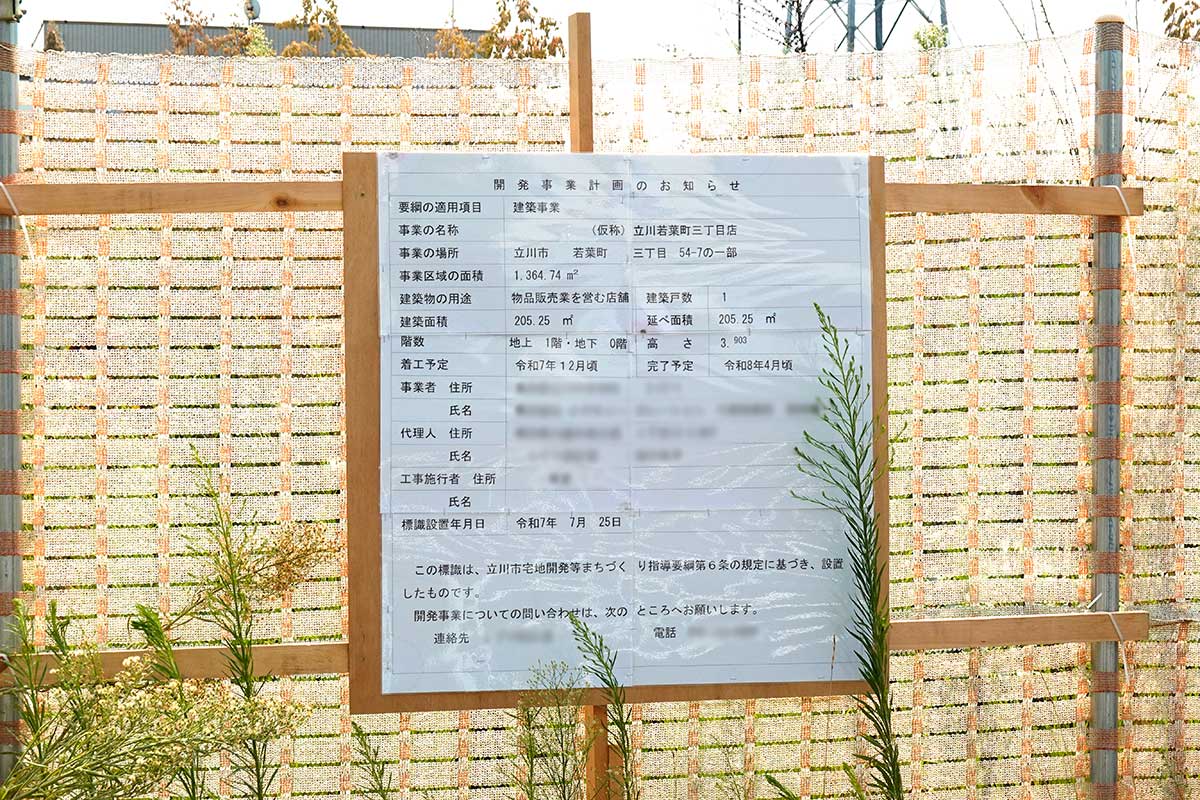 開発事業計画のお知らせ
要綱の適用項目 建築事業
事業の名称 (仮称)立川若葉町三丁目店
事業の場所 立川市 若葉町 三丁目 54-7の一部
事業区域の面積 1,364.74 ㎡
建築物の用途 物品販売業を営む店舗 建築戸数 1
建築面積 205.25 ㎡ 延べ面積 205.25 ㎡
階数 地上 1階・地下 0階 高さ 3.903
着工予定 令和7年12月頃 完了予定 令和8年4月頃
事業者 住所
氏名
代理人 住所
氏名
工事施行者 住所
氏名
標識設置年月日 令和7年 7月 25日
この標識は、立川市宅地開発等まちづくり指導要綱第6条の規定に基づき、設置
したものです。
開発事業についての問い合わせは、次のところへお願いします。
連絡先 電話